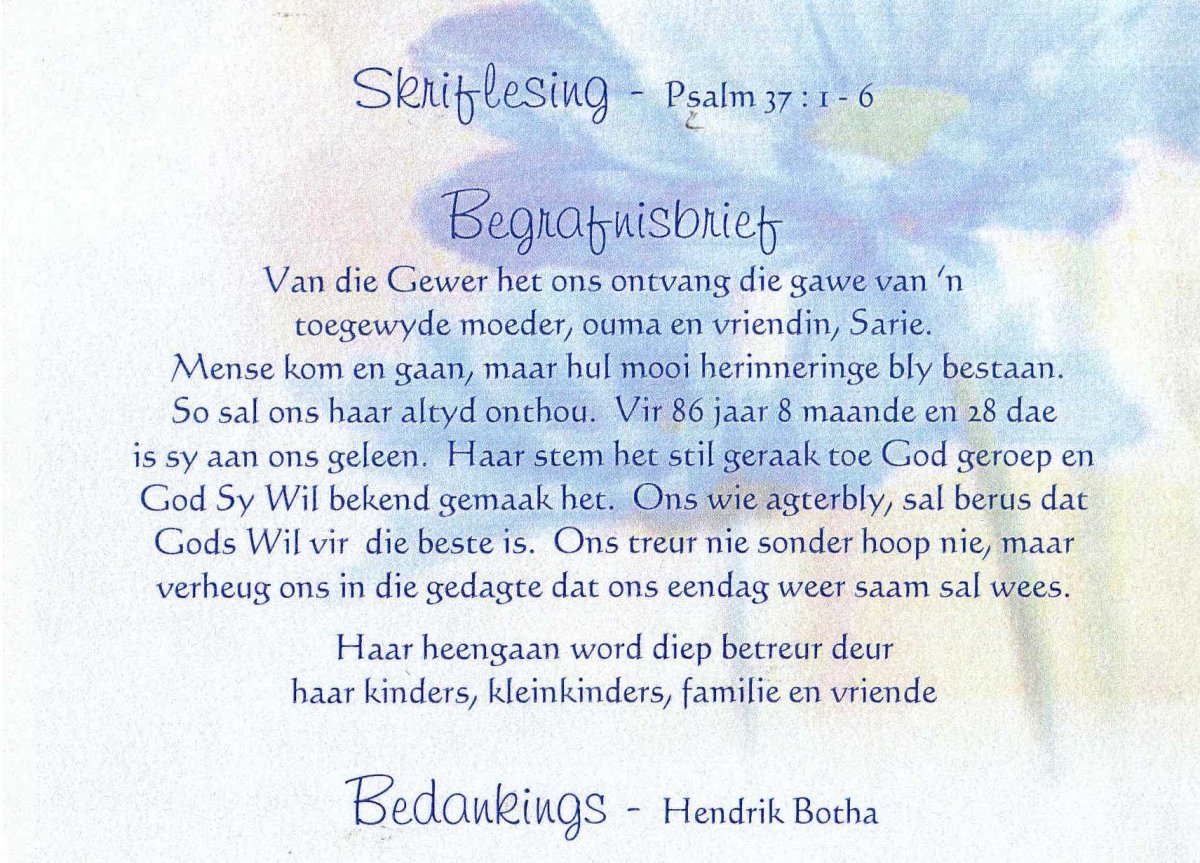 Skriflesing - Psalm 37 : 1 - 6
Begrafnisbrief
Van die Gewer het ons ontvang die gawe van 'n
toegewyde moeder, ouma en vriendin, Sarie.
Mense kom en gaan, maar hul mooi herinneringe bly bestaan.
So sal ons haar altyd onthou. Vir 86 jaar 8 maande en 28 dae
is sy aan ons geleen. Haar stem het stil geraak toe God geroep en
God Sy Wil bekend gemaak het. Ons wie agterbly, sal berus dat
Gods Wil vir die beste is. Ons treur nie sonder hoop nie, maar
verheug ons in die gedagte dat ons eendag weer saam sal wees.
Haar heengaan word diep betreur deur
haar kinders, kleinkinders, familie en vriende
Bedankings - Hendrik Botha